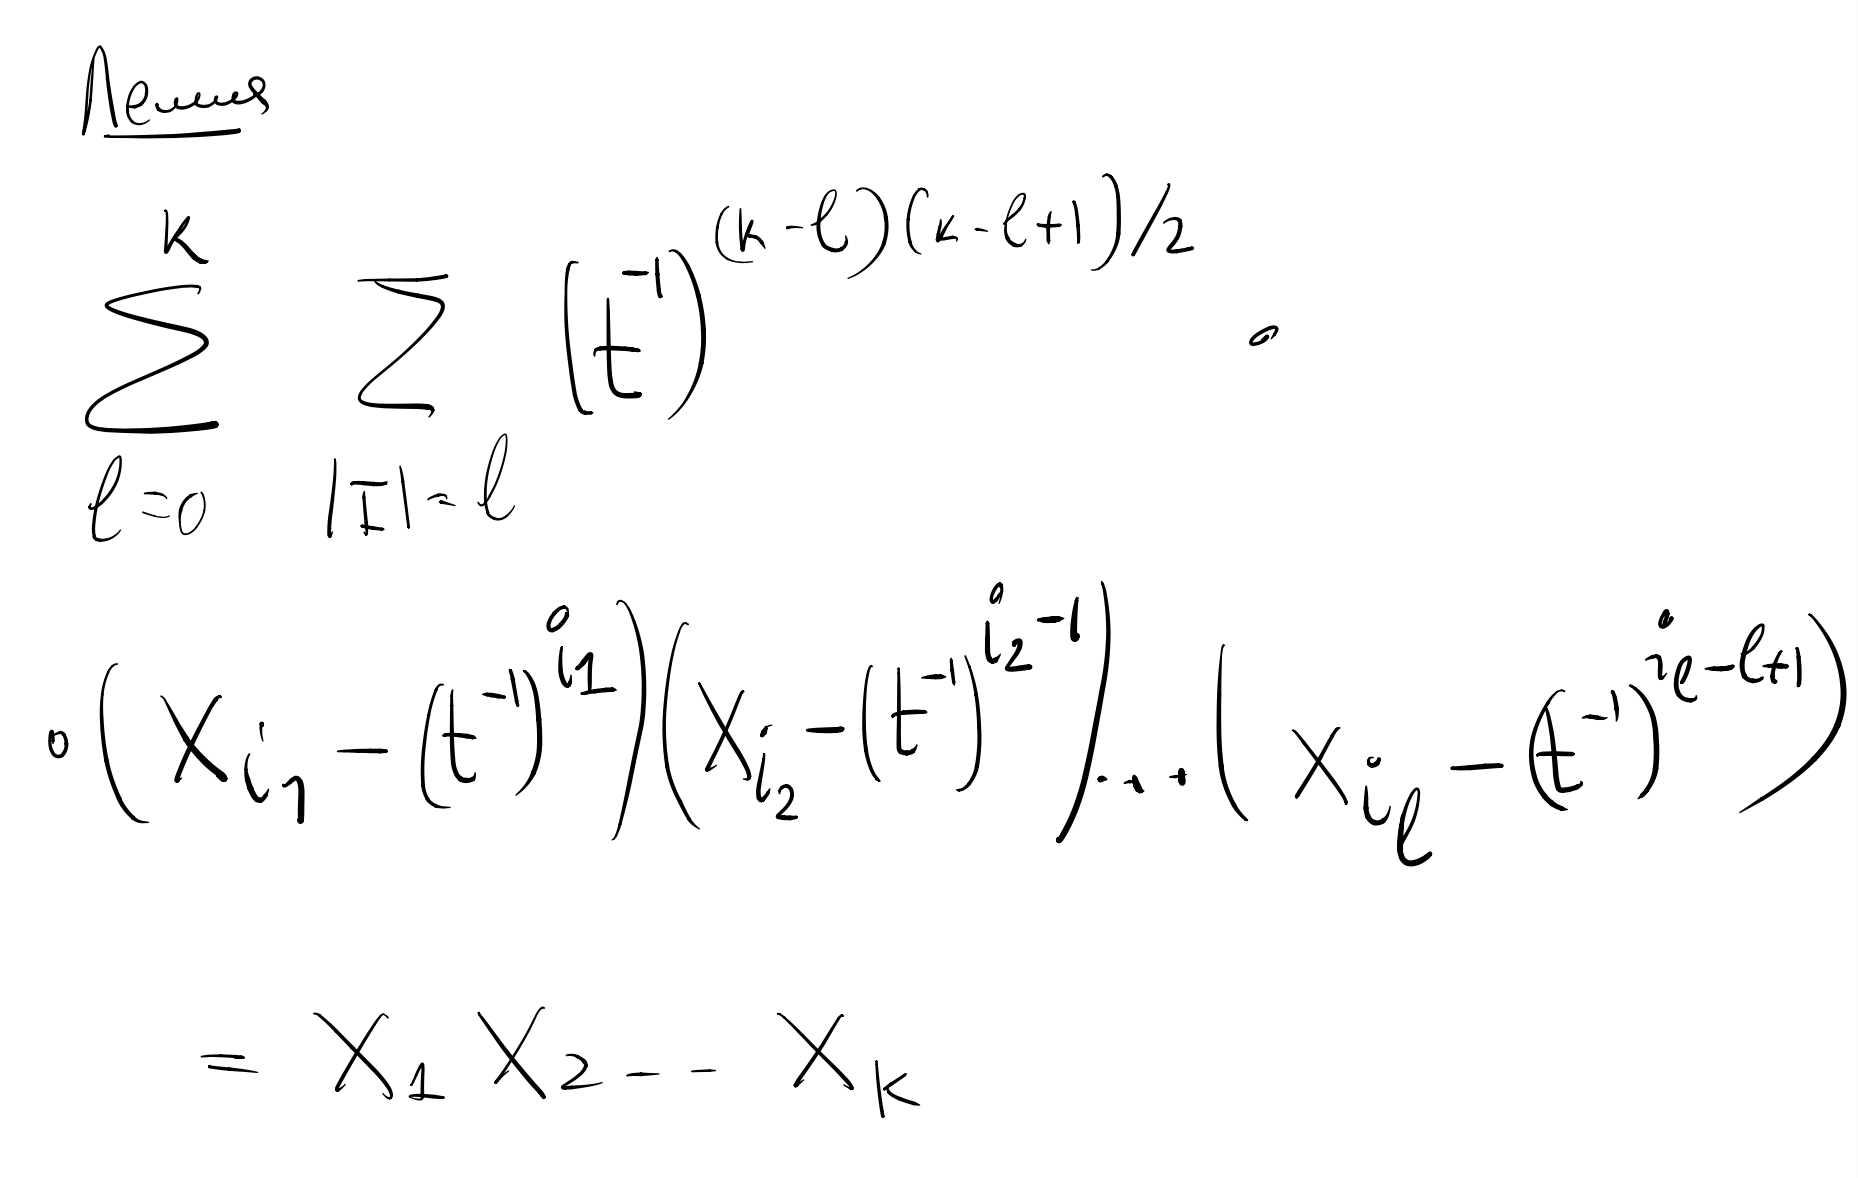 Лемма
\sum_{l=0}^{k} \sum_{|I|=l} (t^{-1})^{(k-l)(k-l+1)/2} \cdot
\cdot (x_{i_1} - (t^{-1})^{i_1})(x_{i_2} - (t^{-1})^{i_2-1}) \ldots (x_{i_l} - (t^{-1})^{i_l-l+1})
= x_1 x_2 -- x_k